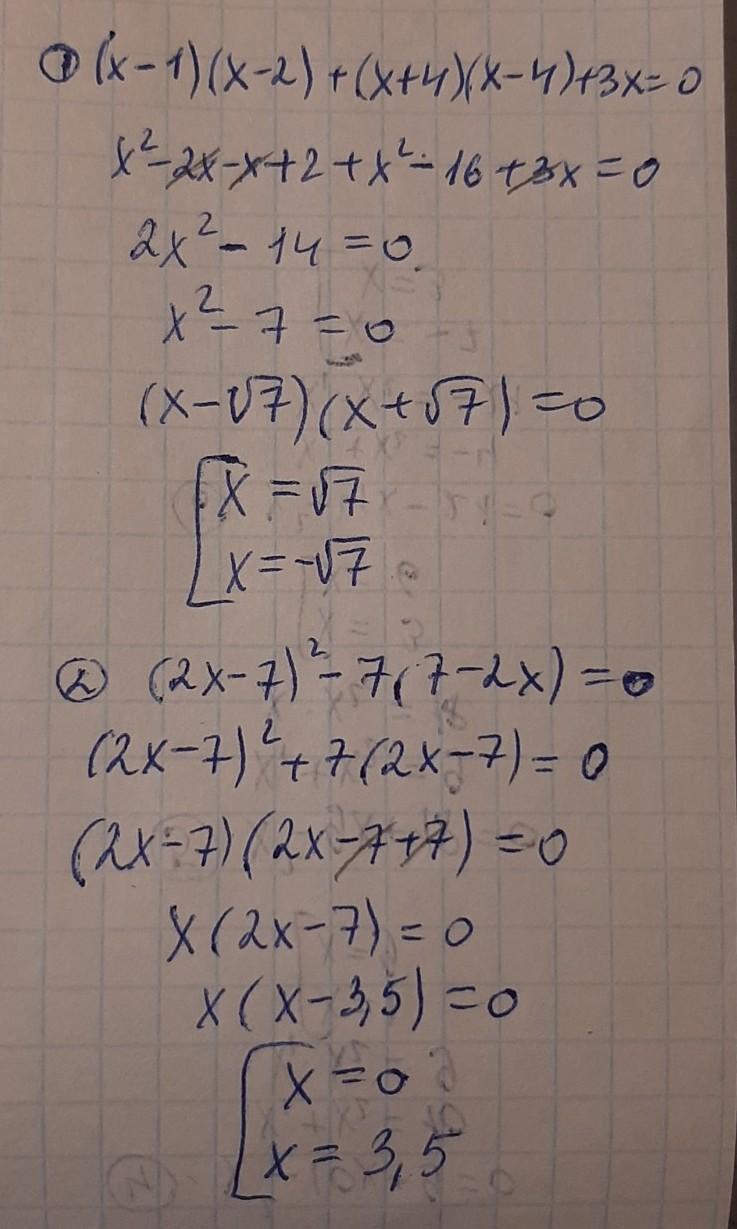 ① (x-1)(x-2)+(x+4)(x-4)+3x=0
x²-2x-x+2+x²-16+3x=0
2x²-14=0
x²-7=0
(x-√7)(x+√7)=0
[x=√7
x=-√7
② (2x-7)²-7(7-2x)=0
(2x-7)²+7(2x-7)=0
(2x-7)(2x-7+7)=0
x(2x-7)=0
x(x-3,5)=0
[x=0
x=3,5